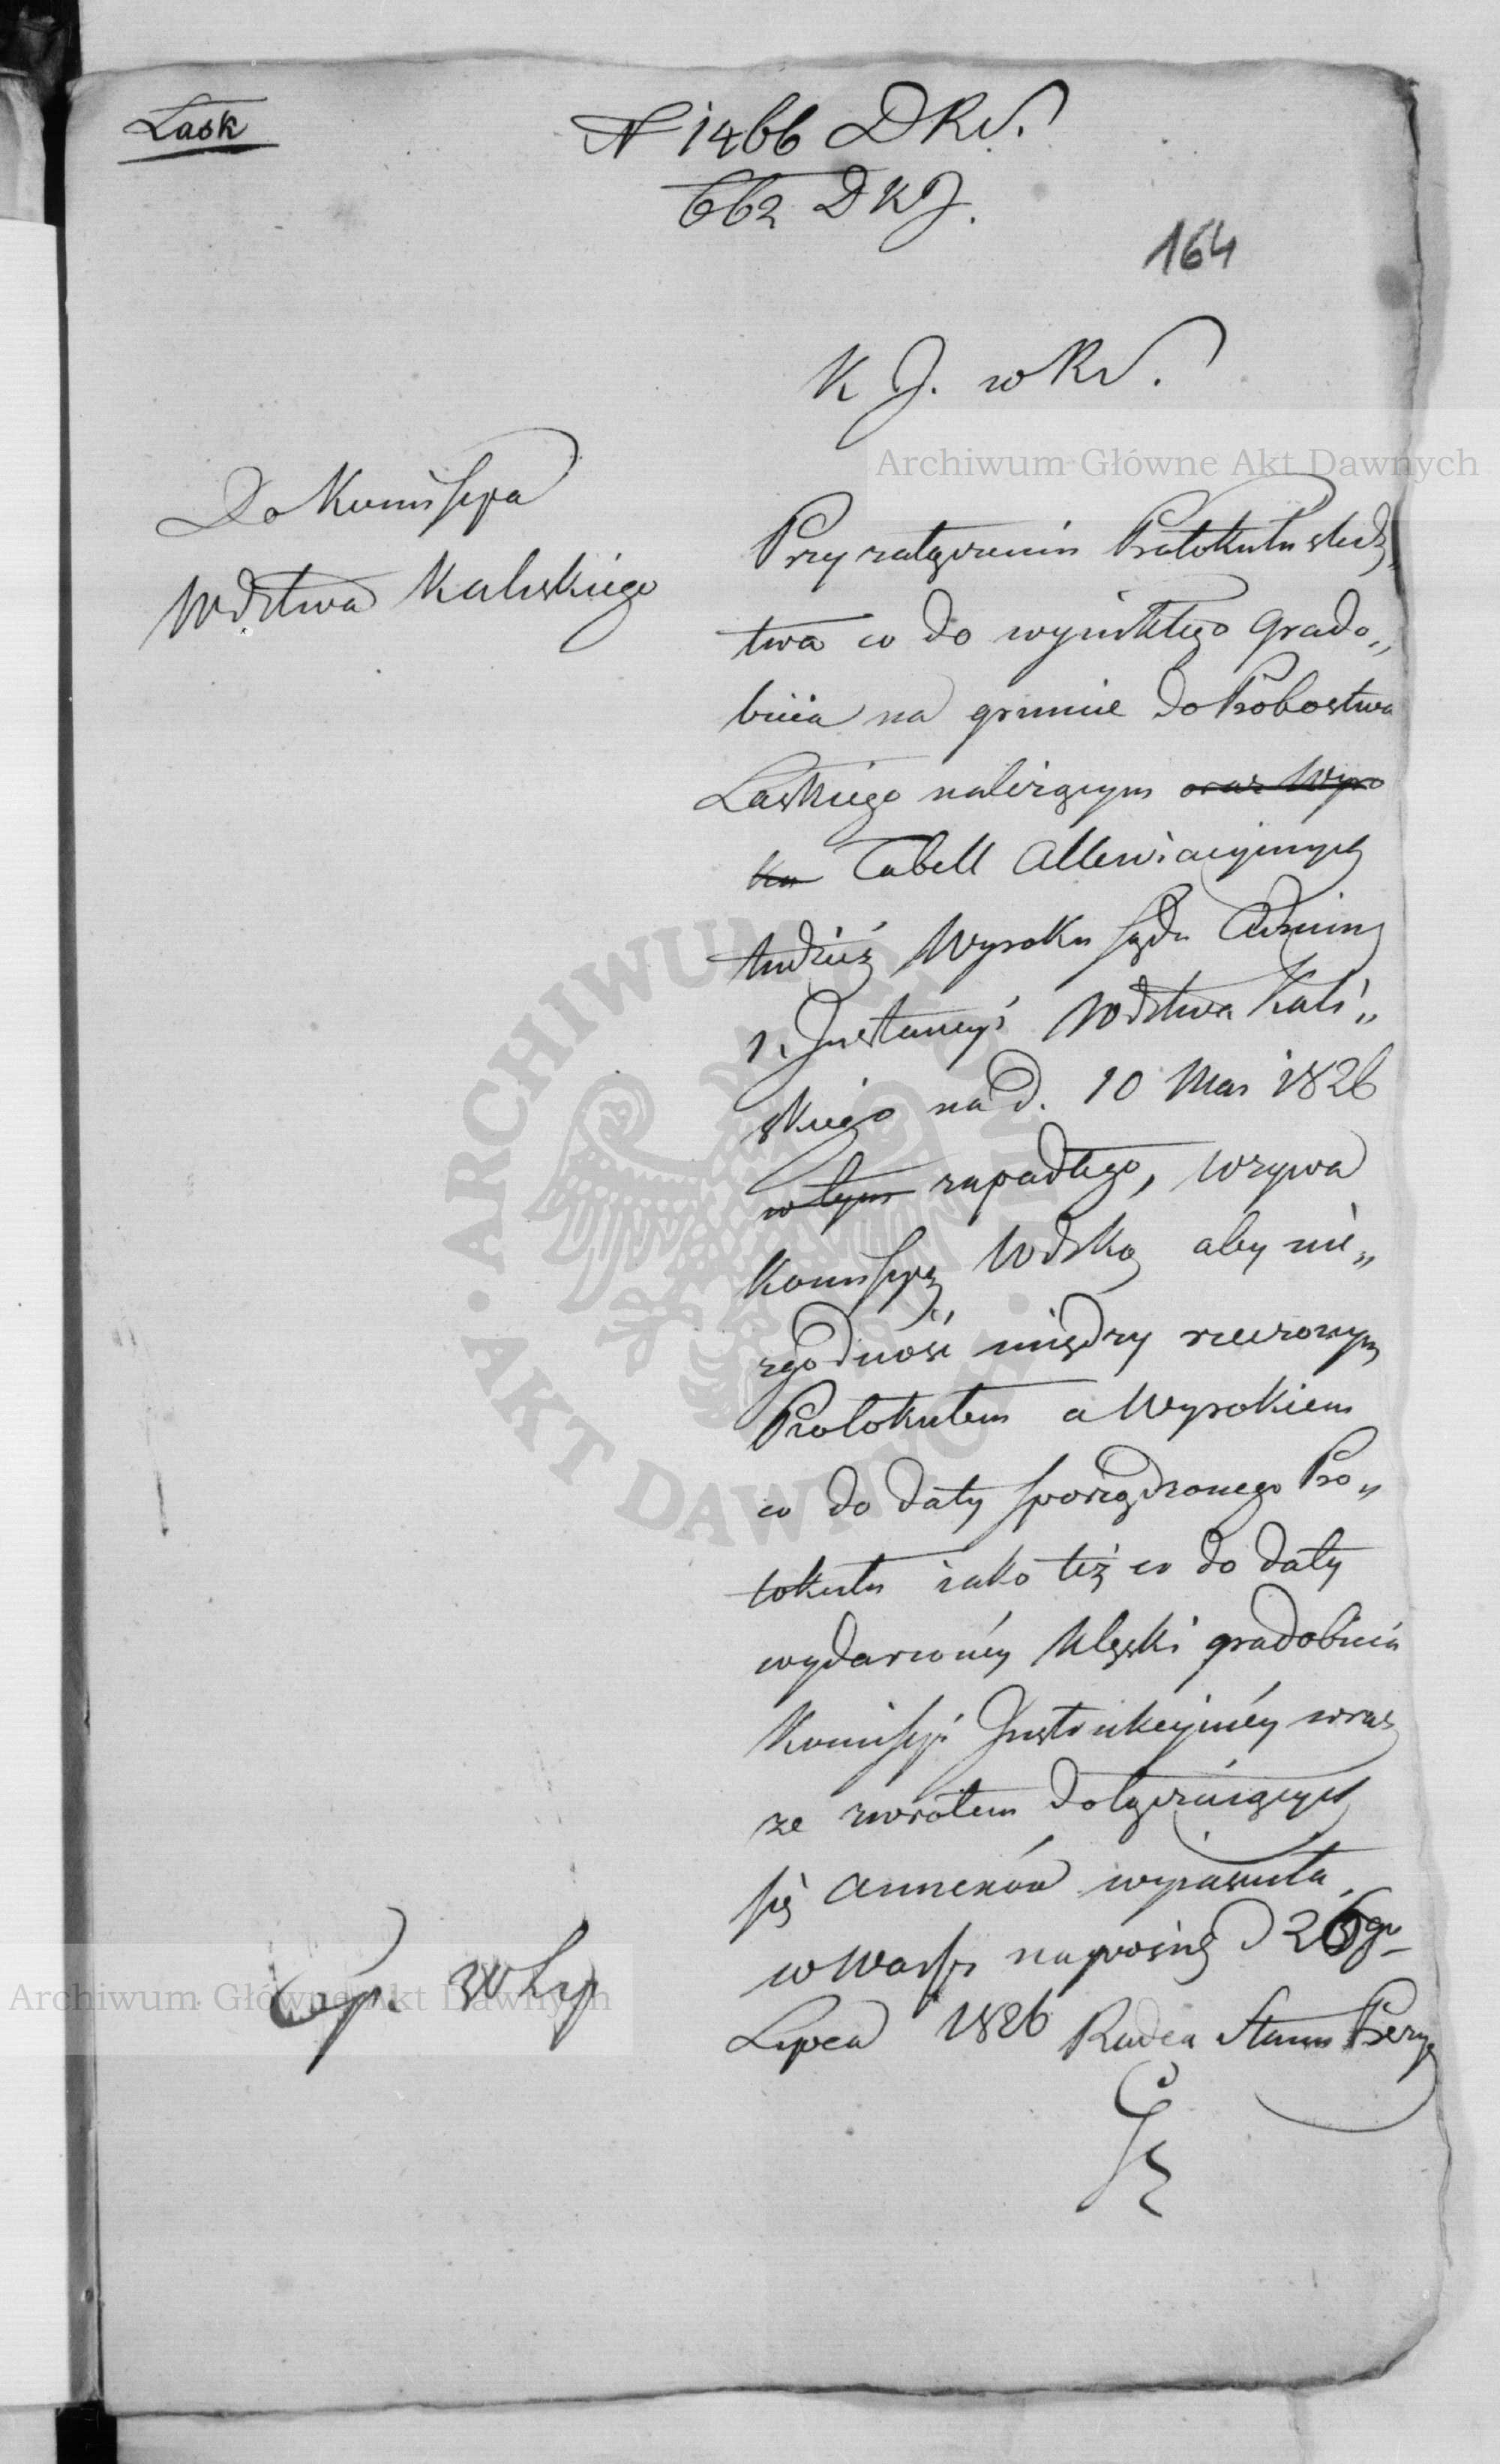 Lask
N 1466 DRN.
662 DKJ.
164
K J. w RN.
Do Kommissyi
Wdztwa Kaliskiego
Przy załączeniu Protokułu śledz„
twa co do wynikłego grado„
bicia na gruncie do Probostwa
Laskiego należącym oraz Wyro
ku Tabell Allewiacyjnych
tudzież Wyroku Sądu Admin
1. Instancyi Wdztwa Kali„
skiego na d. 10 Mar 1826
w tym zapadłego, wzywa
Kommissyą Wdzką aby nie„
zgodność między rzeczonym
Protokułem a Wyrokiem
co do daty sporządzonego Pro„
tokułu iako też co do daty
wydarzonéy klęski gradobicia
Kommissyi Instrukcyinéy wraz
ze zwrotem dołączaiących
się annexów wyiaśniła.
w Warsz na posied d 26go
Lipca 1826 Radca Stanu Prezy